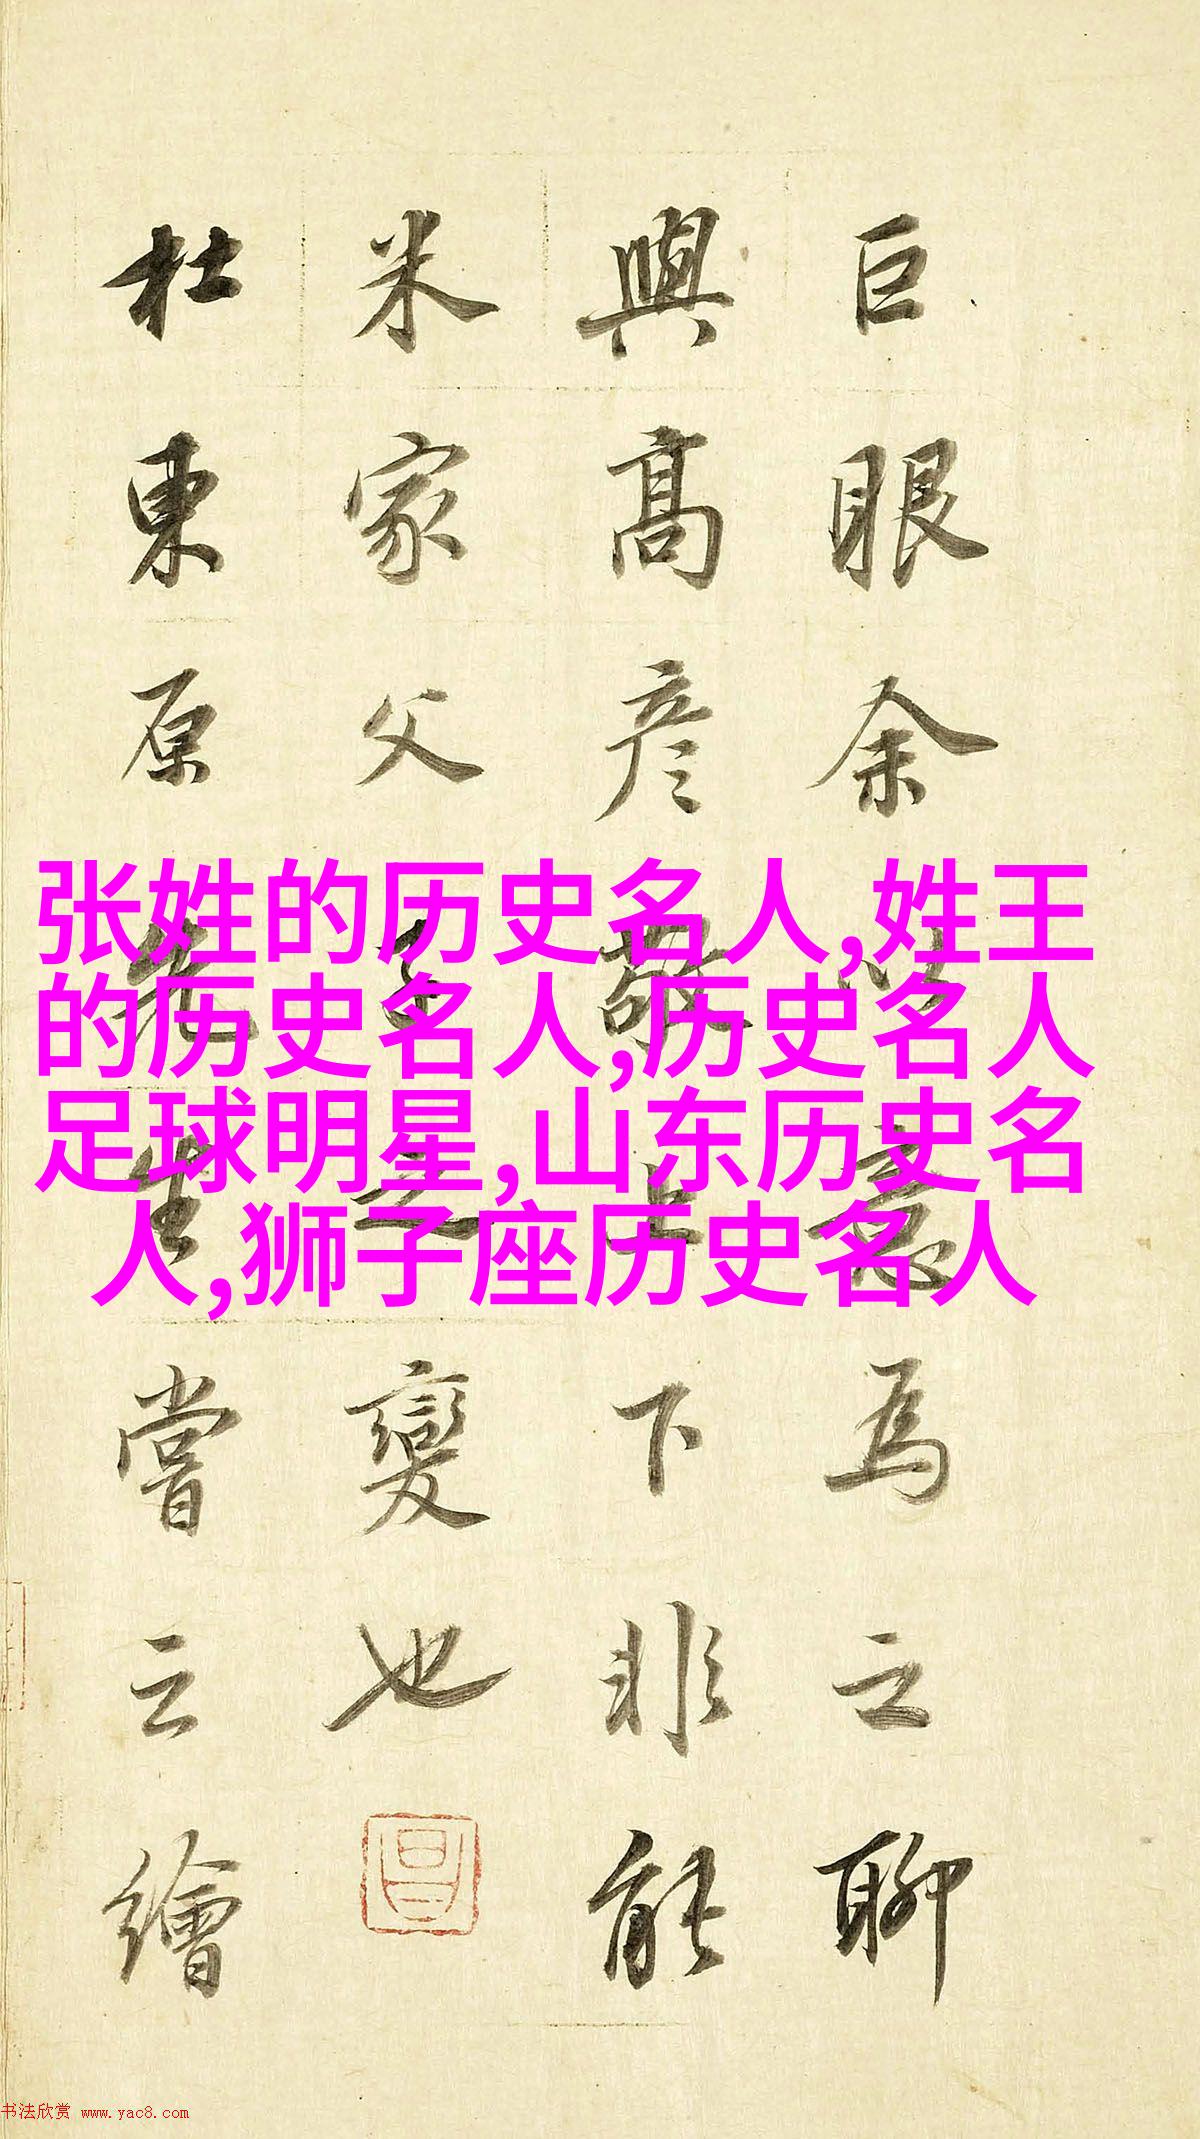 巨眼余以意為之聊
與高彥敬上下非能
米家父子之變也
杜東原先生嘗云繪
张姓的历史名人,姓王
的历史名人,历史名人
足球明星,山东历史名
人,狮子座历史名人
书法欣赏 www.yac8.com